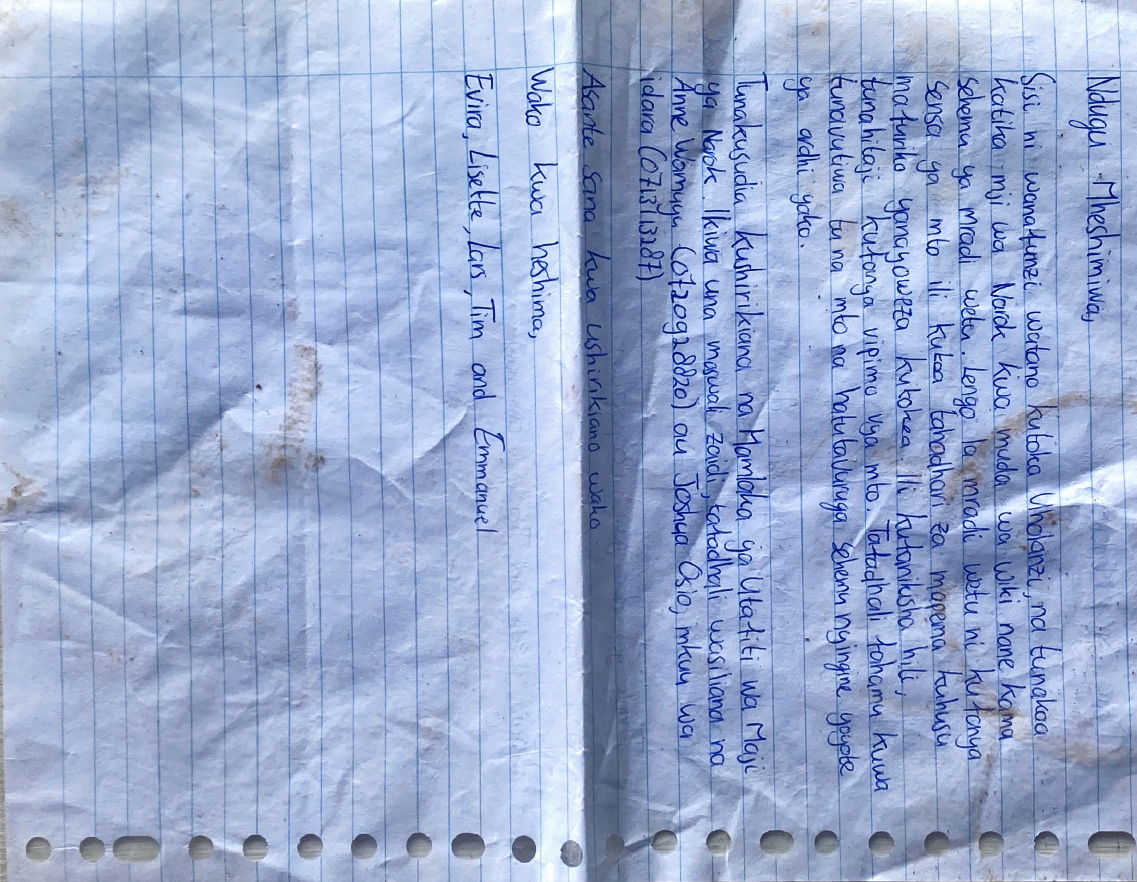 Ndugu Mheshimiwa,
Sisi ni wanafunzi watano kutoka Uholanzi, na tunakaa
katika mji wa Narok kwa muda wa wiki nane kama
sehemu ya mradi wetu. Lengo la mradi wetu ni kufanya
sensa ya mto ili kutoa tahadhari za mapema kuhusu
mafuriko yanayoweza kutokea. Ili kufanikisha hili,
tunahitaji kufanya vipimo vya mto. Tafadhali fahamu kuwa
tunavutiwa tu na mto na hatutavuruga sehemu nyingine yoyote
ya ardhi yako.
Tunakusudia kushirikiana na Mamlaka ya Utafiti wa Maji
ya Narok. Ikiwa una maswali zaidi, tafadhali wasiliana na
Anne Wamuyu (0720928820) au Joshua Osio, mkuu wa
idara (0713113287)
Asante sana kwa ushirikiano wako.
Wako kwa heshima,
Evira, Lisette, Lars, Tim and Emmanuel